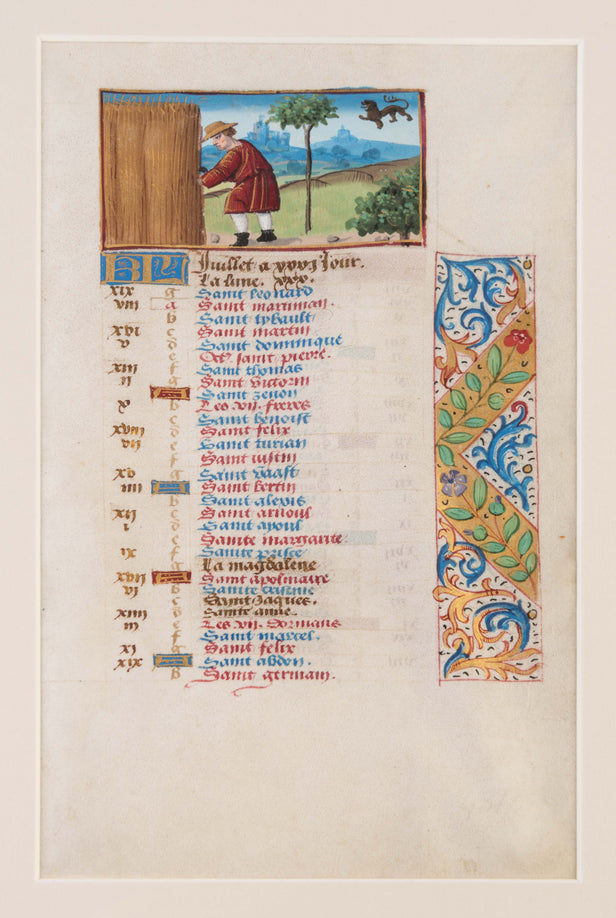 KL Juillet a xxxj Jour.
La lune. xxx.
xix g Saint leonard
viii a Saint marcinian.
b Saint thibault
xvi c Saint martin
v d Saint dominique
e Oct. saint pierre.
xiii f Saint thomas
ii g Saint victorin
Saint zenon
x b Les vij. freres
c Saint benoist
xviii d Saint felix
vii e Saint turian
f Saint iustin
xv g Saint vaast
iiii Saint bertin
b Saint alexis
xii c Saint arnoul
i d Saint apoul
e Sainte margarite
ix f Sainte
g La magdalene
xvii Saint apolinaire
vi b Sainte
c Saint Jaques.
xiiii d Sainte anne.
iii e Les vij. dormans
f Saint marcel.
xi g Saint felix
xix Saint abdon.
b Saint germain.